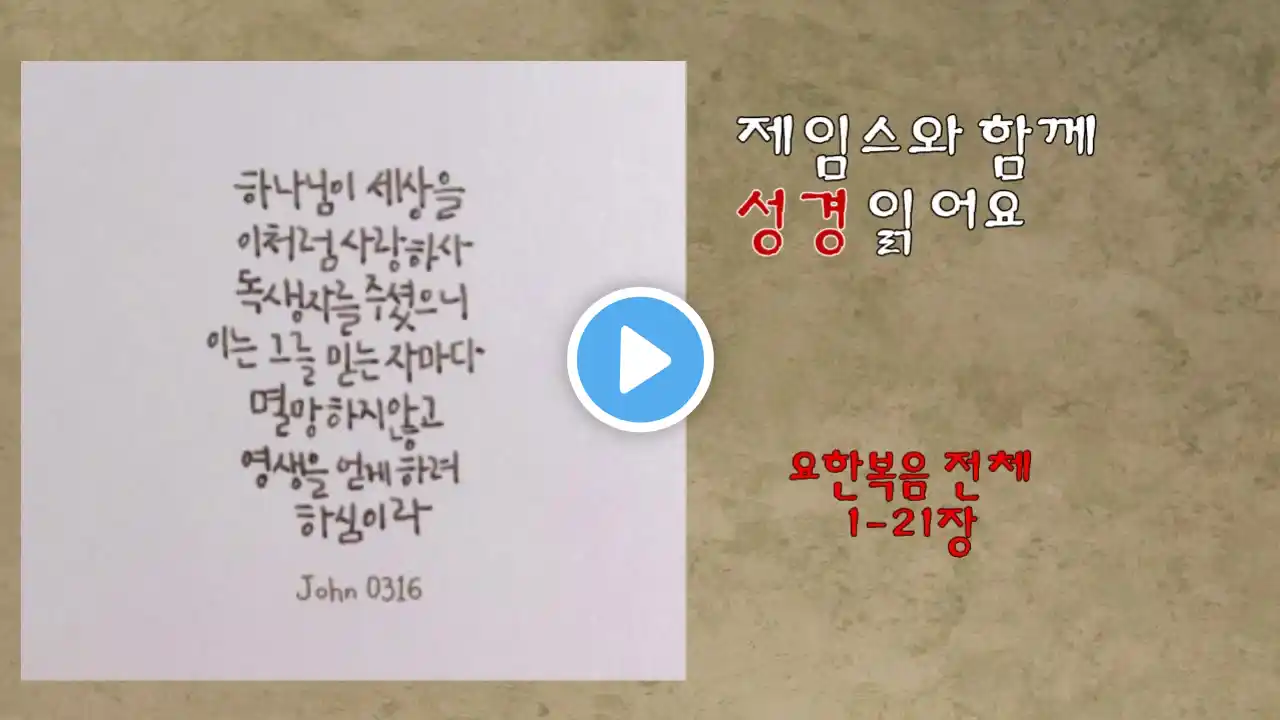 하나님이 세상을
이처럼 사랑하사
독생자를 주셨으니
이는 그를 믿는 자마다
멸망하지않고
영생을 얻게 하려
하심이라
John 0316
제임스와 함께
성경 읽어요
요한복음 전체
1-21장